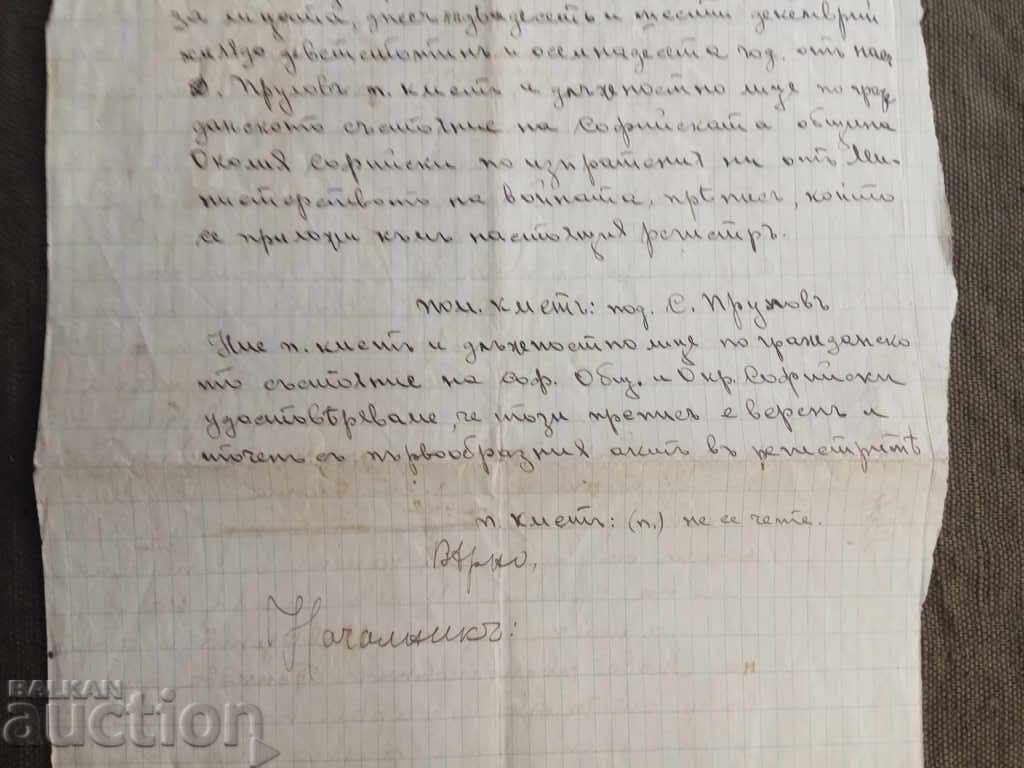 за лицата, днесъ двадесеть и шести декемврий
хиляда деветстотинъ и осемнадесета год. отъ насъ
С. Прумовъ п. кметъ и длъжностно лице по граж
данското състояние на Софийската община
Околия Софийски по изпратения ни отъ Ми-
нистерството на войната, прѣписъ, който
се приложи къмъ настоящия регистръ.
пом. кметъ: под. С. Прумовъ
Ние п. кметъ и длъжностно лице по гражданско
то състояние на Соф. Общ. и Окр. Софийски
удостовѣряваме, че този преписъ е веренъ и
точенъ съ първообразния актъ въ регистритѣ
п. кметъ: (п.) не се чете.
Вѣрно,
Началникъ:
BALKAN
auction